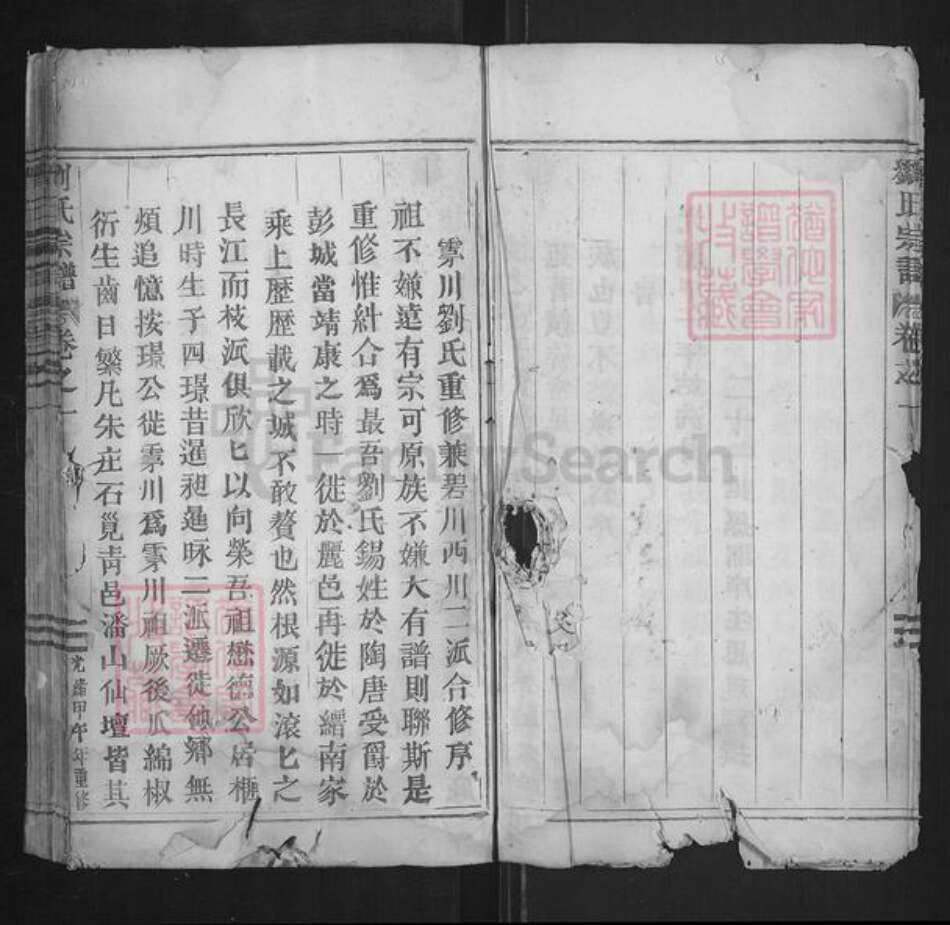 劉氏宗譜 卷之一
霁川劉氏重修兼碧川西川二派合修序
祖不嫌遠有宗可原族不嫌大有譜則聯斯是
重修惟糾合爲最吾劉氏錫姓於陶唐受爵於
彭城當靖康之時一徙於麗邑再徙於縉南家
乘上歷歷載之诚不敢贅也然根源如滾匕之
長江而枝派俱欣匕以向榮吾祖懋德公居櫃
川時生子四璟昔暹昶二派遷徙他鄉無
煩追憶按璟公徙霁川爲霁川祖厥後瓜綿椒
衍生齒日繁凡朱庄石覓靑邑潘山仙壇皆其
劉氏宗譜 卷之一
光緒甲午年重修
猶他家譜學會收藏
FamilySearch